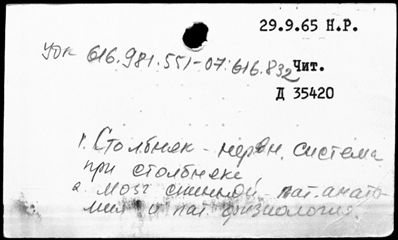 29.9.65 Н.Р.
УДК 616.981.551-07:616.832
Чит.
Д 35420
1. Столбняк - нервн. система
при столбняке
2. мозг спинной - пат. анато-
мия и пат. физиология.